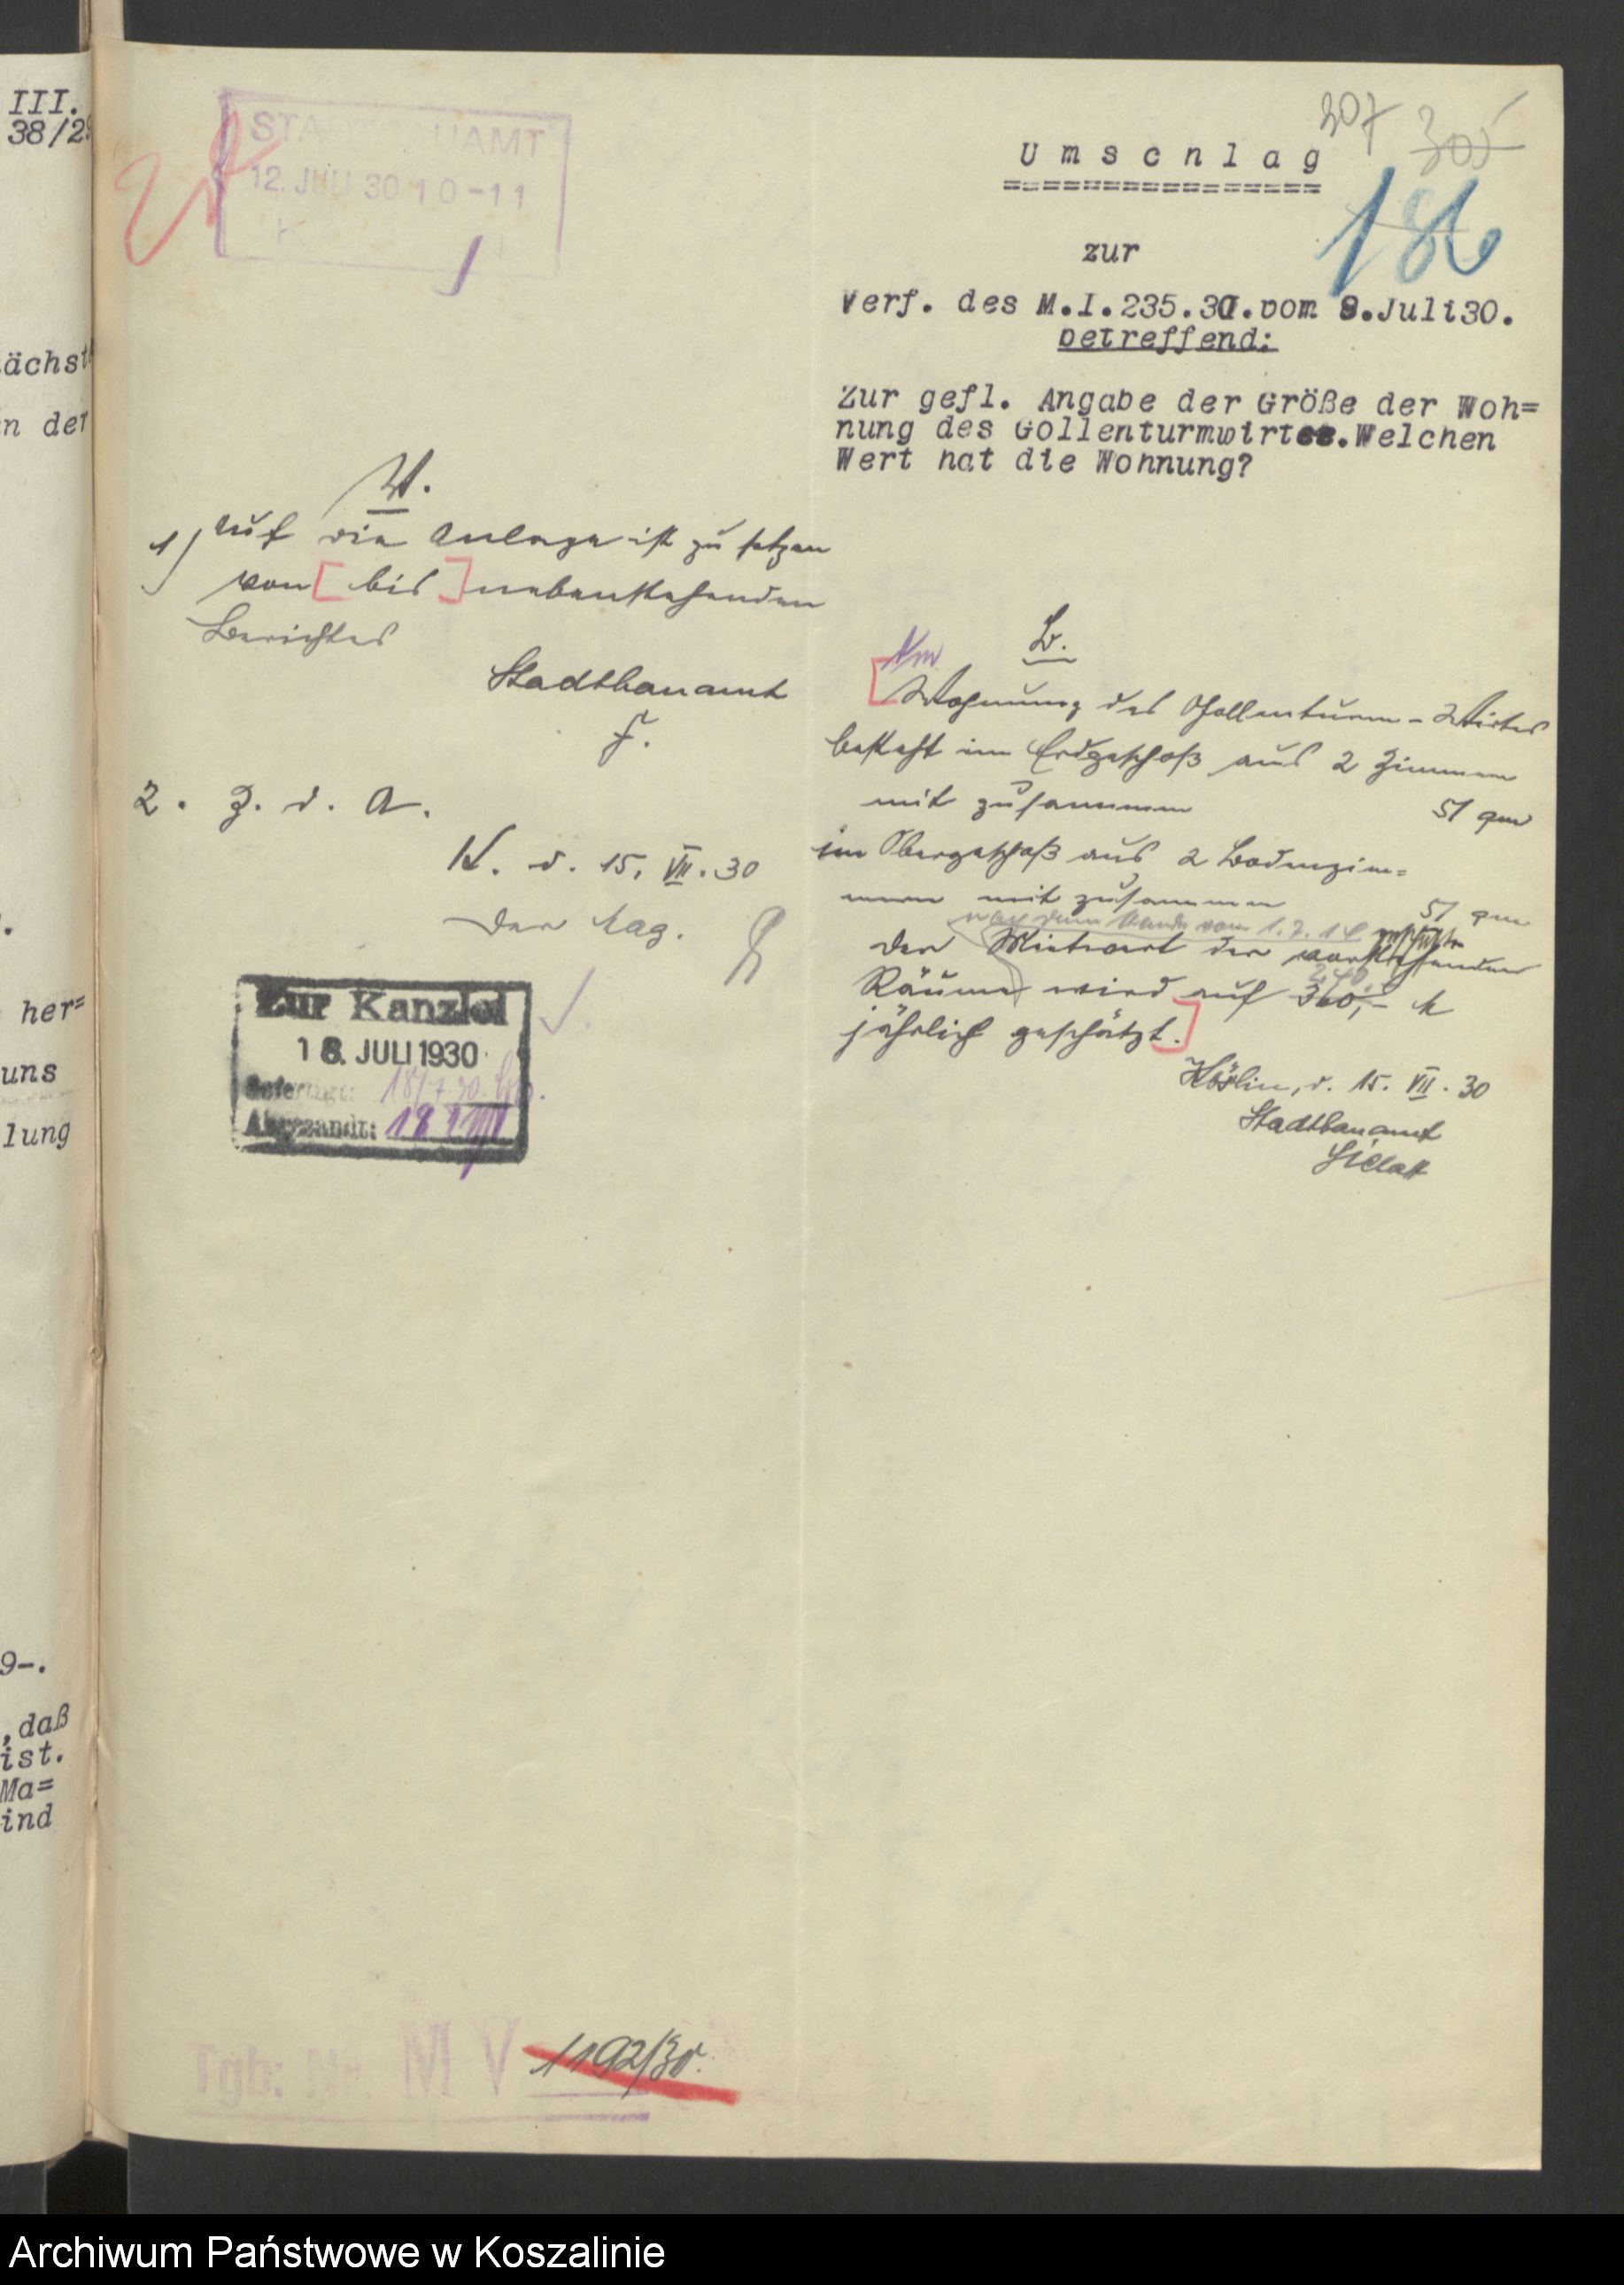 III.
38/29
ächst
n der
her=
uns
lung
9-.
,daß
ist.
Ma=
ind
STADTBAUAMT
12. JULI 30 10-11
307
305
186
Umschlag
zur
Verf. des M.I.235.30.vom 9.Juli30.
betreffend:
Zur gefl. Angabe der Größe der Woh=
nung des Gollenturmwirtes.Welchen
Wert hat die Wohnung?
U.
1) Auf die Anlage ist zu setzen
von [ bis ] nebenstehenden
Berichtes
Stadtbauamt
F.
2. Z. d. A.
K. d. 15. VII. 30
Der Mag.
Zur Kanzlei
18. JULI 1930
Gefertigt: 18/7.30.
Abgesandt: 18
B.
[Wohnung des Gollenturm-Wirtes
besteht im Erdgeschoß aus 2 Zimmern
mit zusammen 51 qm
im Obergeschoß aus 2 Bodenzim=
mern mit zusammen 51 qm
nach dem Stande vom 1.7.14
Der Mietwert der vorstehenden
240
Räume wird auf 360,- M
jährlich geschätzt.]
Köslin, d. 15. VII. 30
Stadtbauamt
Tgb: Nr. M V 1192/30.
Archiwum Państwowe w Koszalinie